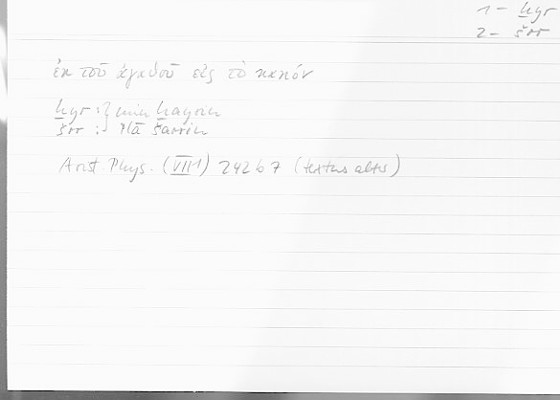 1 - ḫyr
2 - šrr
ἐκ τοῦ ἀγαθοῦ εἰς τὸ κακόν
ḫyr : } min ḫayrin
šrr : } ilā šarrin
Arist. Phys. (VII 1) 242 b 7 (textus alter)